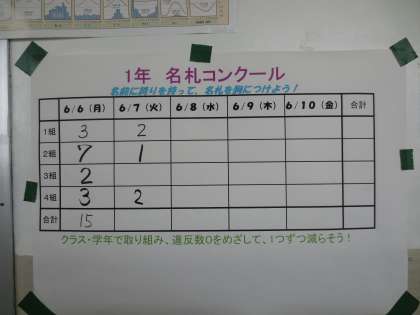 1年 名札コンクール
名前に誇りを持って、名札を胸につけよう!
6/6(月) 6/7(火) 6/8(水) 6/9(木) 6/10(金) 合計
1組 3 2
2組 7 1
3組 2
4組 3 2
合計 15
クラス・学年で取り組み、違反数0をめざして、1つずつ減らそう!